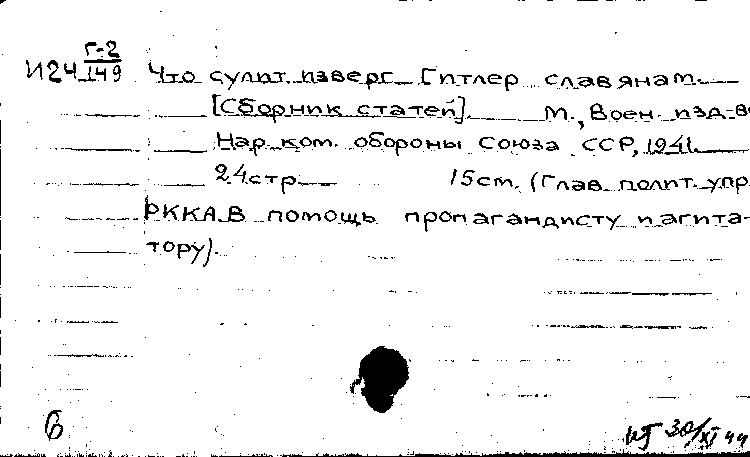 Г-2
И24 149 Что сулит изверг Гитлер славянам.
[Сборник статей]. М., Воен. изд-во
Нар. ком. обороны Союза ССР, 1941.
24стр 15см. (Глав. полит. упр.
РККА. В помощь пропагандисту и агита-
тору).
В
30/XI 44